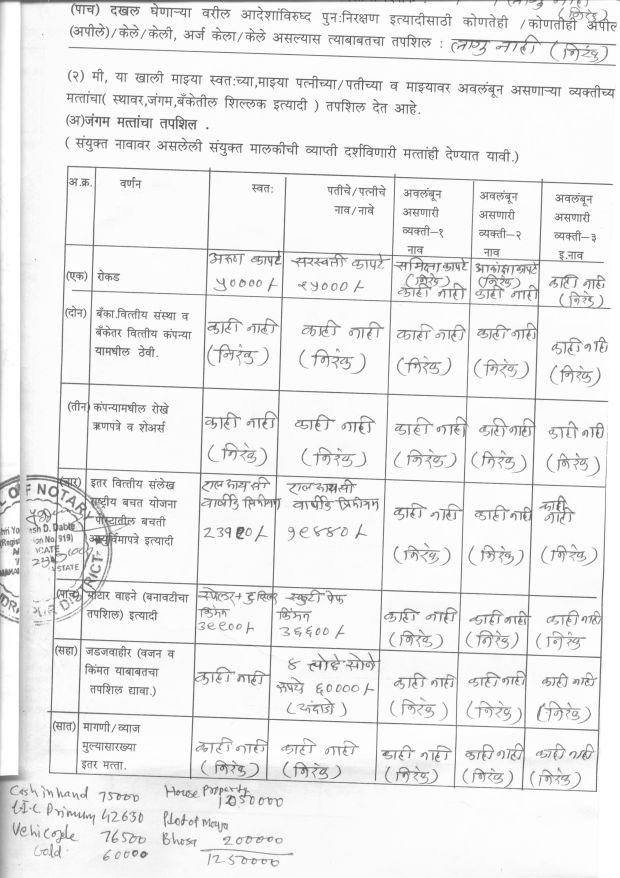 (पाच) दखल घेणाऱ्या वरील आदेशांविरुध्द पुन:निरक्षण इत्यादीसाठी कोणतेही /कोणतीही अपील
(अपीले)/केले/केली, अर्ज केला/केले असल्यास त्याबाबतचा तपशिल : लागु नाही (निरंक)
(२) मी, या खाली माझ्या स्वत:च्या,माझ्या पत्नीच्या/पतीच्या व माझ्यावर अवलंबून असणाऱ्या व्यक्तीच्य
मत्तांचा( स्थावर,जंगम,बँकेतील शिल्लक इत्यादी ) तपशिल देत आहे.
(अ)जंगम मत्तांचा तपशिल .
( संयुक्त नावावर असलेली संयुक्त मालकीची व्याप्ती दर्शविणारी मत्तांही देण्यात यावी.)
अ.क्र. वर्णन स्वत: पतीचे/पत्नीचे नाव/नावे अवलंबून असणारी व्यक्ती-१ नाव अवलंबून असणारी व्यक्ती-२ नाव अवलंबून असणारी व्यक्ती-३ इ.नाव
अरुण कापटे सरस्वती कापटे समिक्षा कापटे आकांक्षा कापटे
(एक) रोकड ५००००/- २५०००/- (निरंक) काही नाही (निरंक) काही नाही काही नाही (निरंक)
(दोन) बँका.वित्तीय संस्था व
बँकेतर वित्तीय कंपन्या
यामधील ठेवी.
काही नाही काही नाही काही नाही काही नाही काही नाही
(निरंक) (निरंक) (निरंक) (निरंक) (निरंक)
(तीन) कंपन्यामधील रोखे
ऋणपत्रे व शेअर्स
काही नाही काही नाही काही नाही काही नाही काही नाही
(निरंक) (निरंक) (निरंक) (निरंक) (निरंक)
(चार) इतर वित्तीय संलेख
राष्ट्रीय बचत योजना
पोस्टातील बचती
आयुर्विमापत्रे इत्यादी
वार्षीक प्रिमीयम वार्षीक प्रिमीयम
१९४४०/- काही नाही काही नाही काही नाही
(निरंक) (निरंक) (निरंक)
(पाच) मोटार वाहने (बनावटीचा
तपशिल) इत्यादी
किंमत किंमत
३९९००/- ३६६००/- काही नाही काही नाही काही नाही
(निरंक) (निरंक) (निरंक
(सहा) जडजवाहीर (वजन व
किंमत याबाबतचा
तपशिल द्यावा.)
काही नाही ४ तोळे सोने
रुपये ६००००/-
(अंदाजे)
काही नाही काही नाही काही नाही
(निरंक) (निरंक) (निरंक)
(सात) मागणी/व्याज
मुल्यासारख्या
इतर मत्ता.
काही नाही काही नाही काही नाही काही नाही काही नाही
(निरंक) (निरंक) (निरंक) (निरंक) (निरंक)
Cash in hand 75000 House Property
L.I.C Primum 42630 1050000
Vehicqle 76500 Plot of Mouja
Gold 60000 Bhosa 200000
1250000
OF NOTARY
sh D. Dable
on No. 919)
STATE
DISTRICT